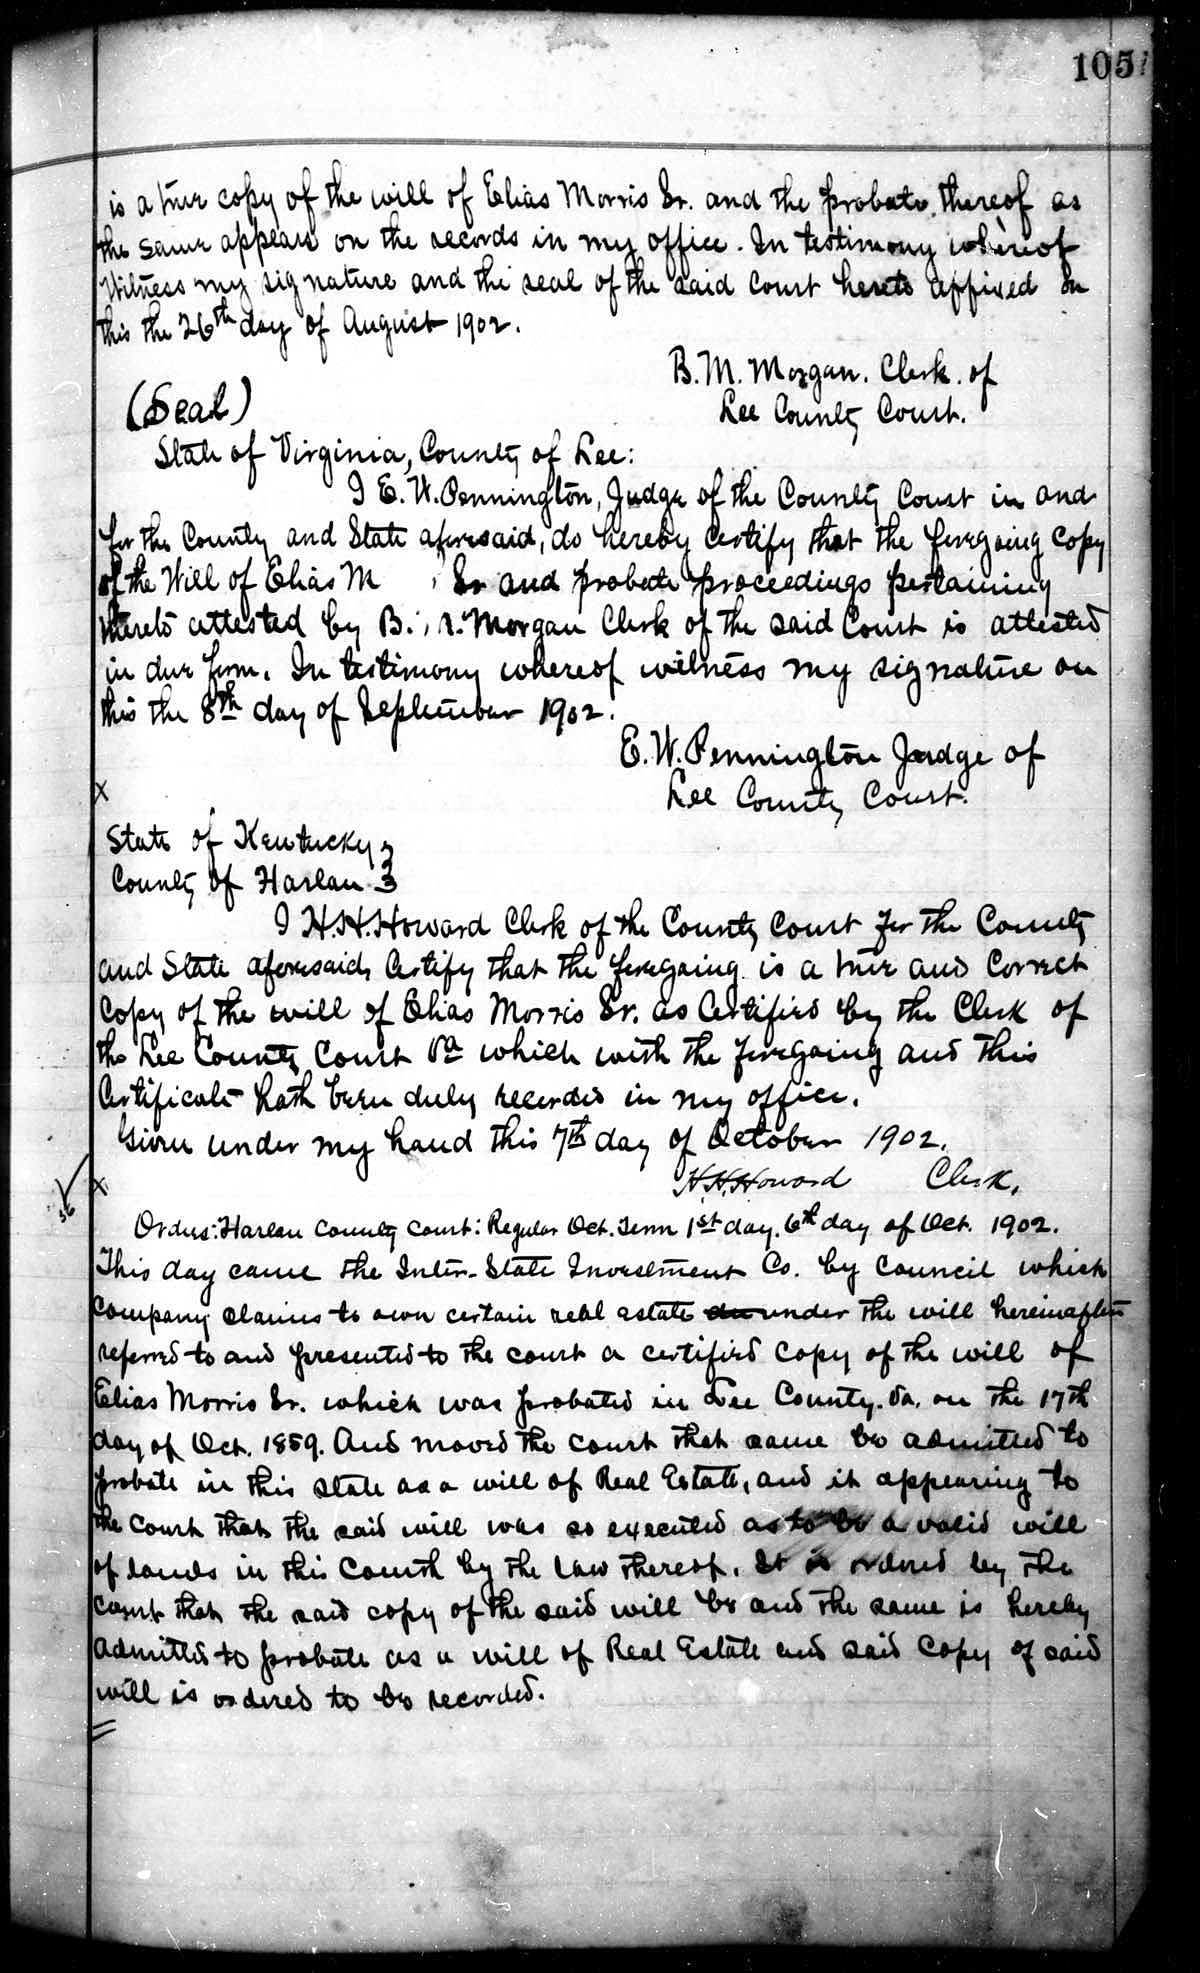 105
is a true copy of the will of Elias Morris Sr. and the probate thereof as
the same appears on the records in my office. In testimony whereof
Witness my signature and the seal of the said Court hereto affixed on
this the 26th day of August 1902.
B. M. Morgan. Clerk. of
Lee County Court.
(Seal)
State of Virginia, County of Lee:
I E. W. Pennington, Judge of the County Court in and
for the County and State aforesaid, do hereby certify that the foregoing copy
of the Will of Elias M Sr and probate proceedings pertaining
thereto attested by B. Morgan Clerk of the said Court is attested
in due form. In testimony whereof witness my signature on
this the 8th day of September 1902.
E. W. Pennington Judge of
Lee County Court.
x
State of Kentucky }
County of Harlan }
I H. H. Howard Clerk of the County Court for the County
and State aforesaid, Certify that the foregoing is a true and Correct
Copy of the will of Elias Morris Sr. as Certified by the Clerk of
the Lee County Court Va which with the foregoing and this
Certificate hath been duly recorded in my office.
Given under my hand this 7th day of October 1902.
H. H. Howard Clerk.
x
Orders: Harlan County Court: Regular Oct. Term 1st day. 6th day of Oct. 1902.
This day came the Inter-State Investment Co. by Council which
Company claims to own certain real estate under the will hereinafter
referred to and presented to the court a certified copy of the will of
Elias Morris Sr. which was probated in Lee County. Va. on the 17th
day of Oct. 1859. And moved the court that same be admitted to
probate in this state as a will of Real Estate, and it appearing to
the Court that the said will was so executed as to be a valid will
of lands in this County by the law thereof. It is ordered by the
court that the said copy of the said will be and the same is hereby
admitted to probate as a will of Real Estate and said copy of said
will is ordered to be recorded.